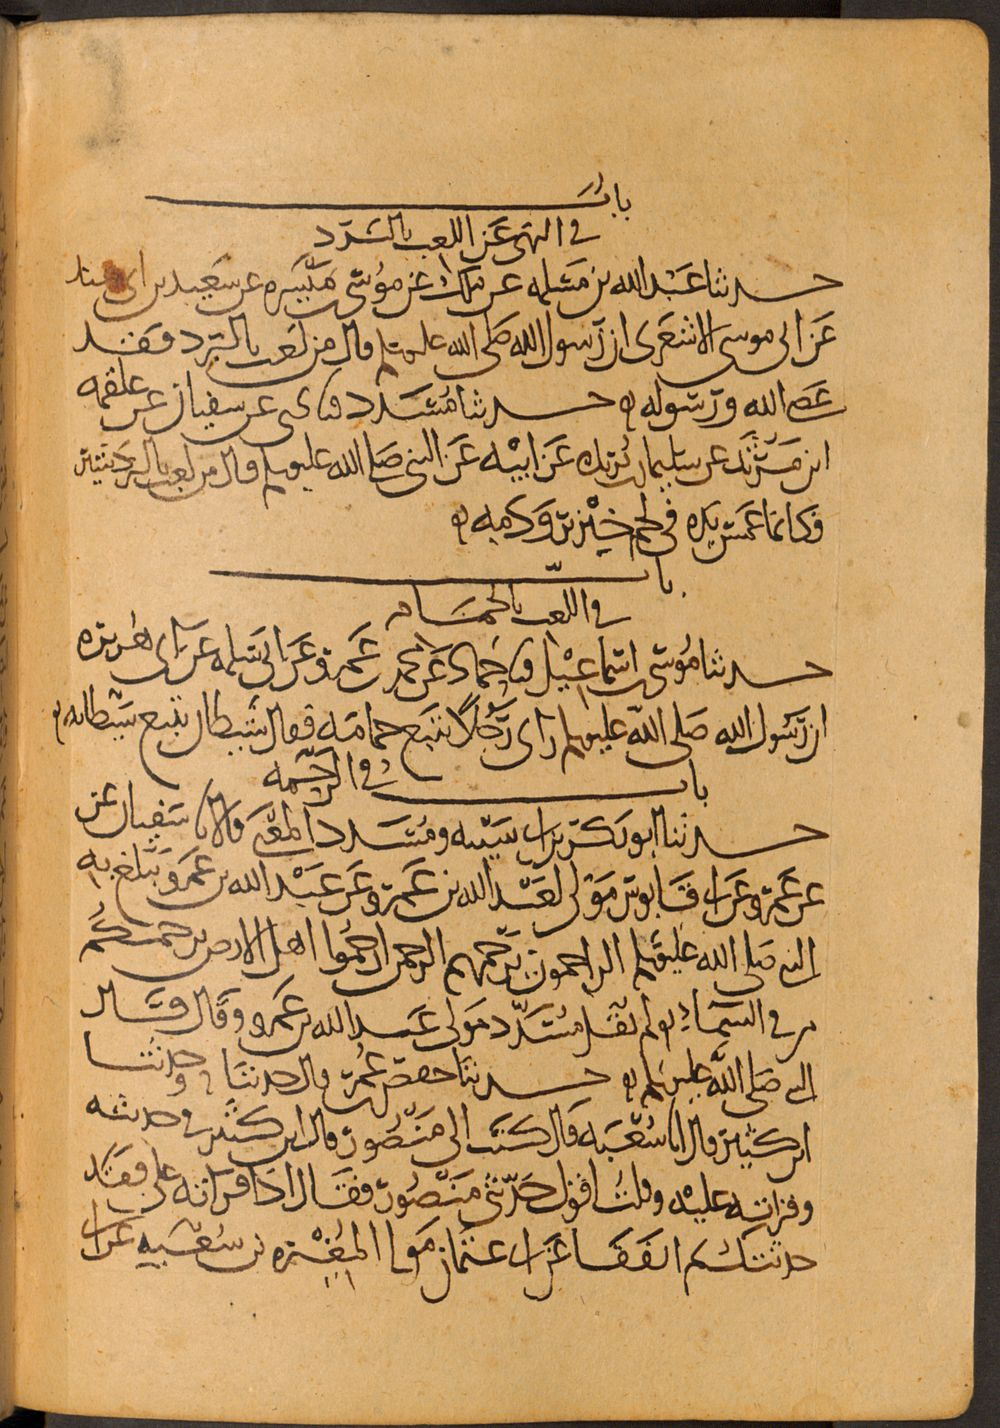 باب
في النهي عن اللعب بالنرد
حدثنا عبد الله بن مسلمه عن ملك عن موسى بن ميسره عن سعيد بن ابي هند
عن ابي موسى الاشعري ان رسول الله صلى الله عليه وسلم قال من لعب بالنرد فقد
عصى الله ورسوله حدثنا مسدد نا يحيى عن سفيان عن علقمه
ابن مرثد عن سليمان بن بريده عن ابيه عن النبي صلى الله عليه وسلم قال من لعب بالنردشير
فكانما غمس يده في لحم خنزير ودمه
باب
في اللعب بالحمام
حدثنا موسى بن اسماعيل نا حماد عن محمد بن عمرو عن ابي سلمه عن ابي هريره
ان رسول الله صلى الله عليه وسلم راى رجلا يتبع حمامه فقال شيطان يتبع شيطانه
باب في الرحمه
حدثنا ابو بكر بن ابي شيبه ومسدد المعنى قالا نا سفيان عن
عن عمرو عن ابي قابوس مولى لعبد الله بن عمرو عن عبد الله بن عمرو يبلغ به
النبي صلى الله عليه وسلم الراحمون يرحمهم الرحمن ارحموا اهل الارض يرحمكم
من في السماء لم يقل مسدد مولى عبد الله بن عمرو وقال قال
النبي صلى الله عليه وسلم حدثنا حفص بن عمر قال حدثنا وحدثنا
ابن كثير قال انا شعبه قال كتب الي منصور قال ابن كثير في حديثه
وقراته عليه وقلت اقول حدثني منصور فقال اذا قراته علي فقد
حدثتك به ثم اتفقا عن ابي عثمان مولى المغيره بن شعبه عن ابي